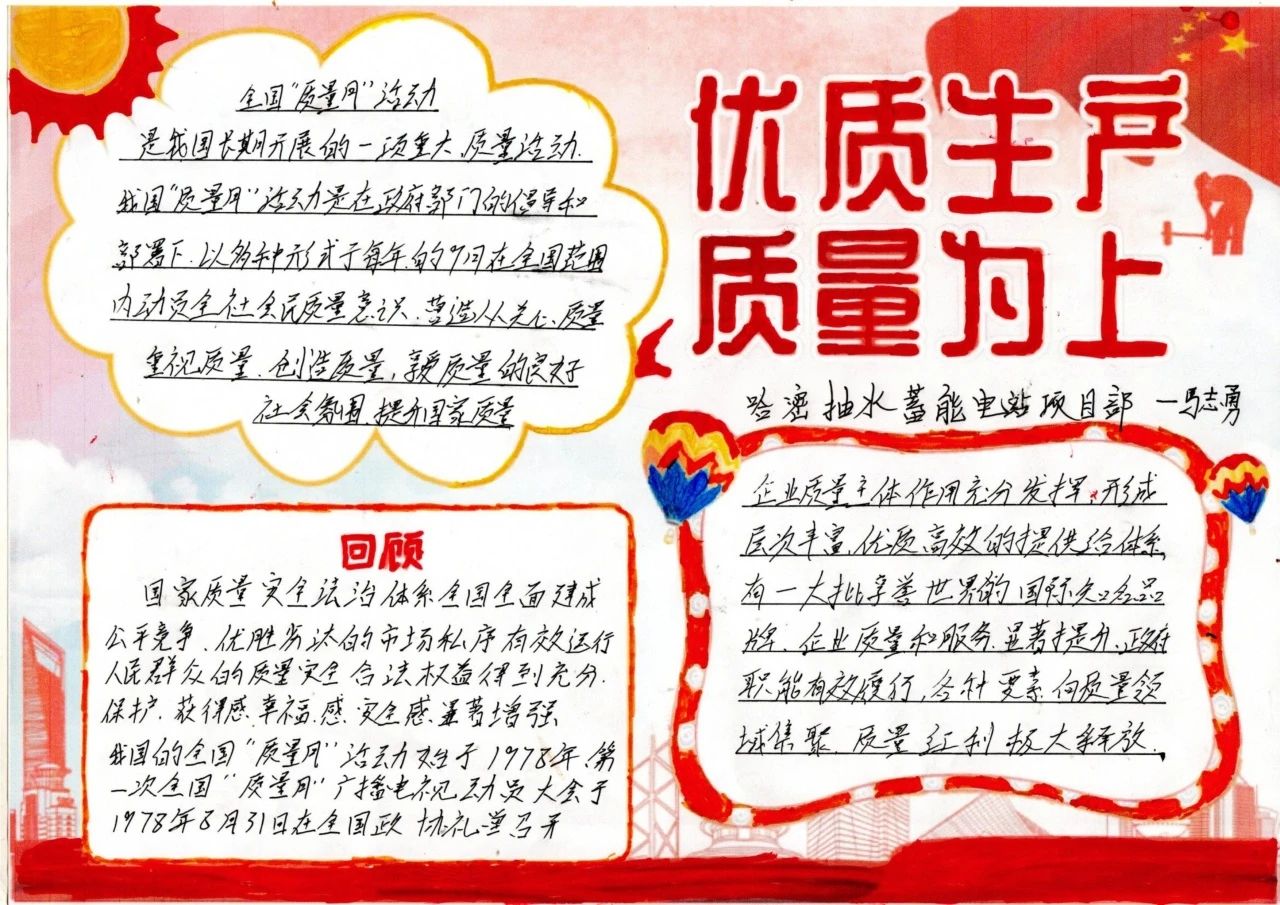 优质生产
质量为上
哈密抽水蓄能电站项目部 一马志勇
全国“质量月”活动
是我国长期开展的一项重大、质量活动.
我国“质量月”活动是在政府部门的倡导和
部署下.以多种形式于每年的9月在全国范围
内动员全社会民质量意识、营造人人关心、质量
重视质量、创造质量,享受质量的良好
社会氛围、提升国家质量
回顾
国家质量安全法治体系全国全面建成
公平竞争、优胜劣汰的市场秩序有效运行
人民群众的质量安全合法权益得到充分.
保护、获得感、幸福感、安全感、显著增强、
我国的全国“质量月”活动始于1978年、第
一次全国“质量月”广播电视动员大会于
1978年8月31日在全国政协礼堂召开
企业质量主体作用充分发挥,形成
层次丰富、优质高效的提供给体系,
有一大批享誉世界的国际知名品
牌、企业质量和服务、显著提升、政府
职能有效履行,各种要素向质量领
域集聚、质量红利极大释放.